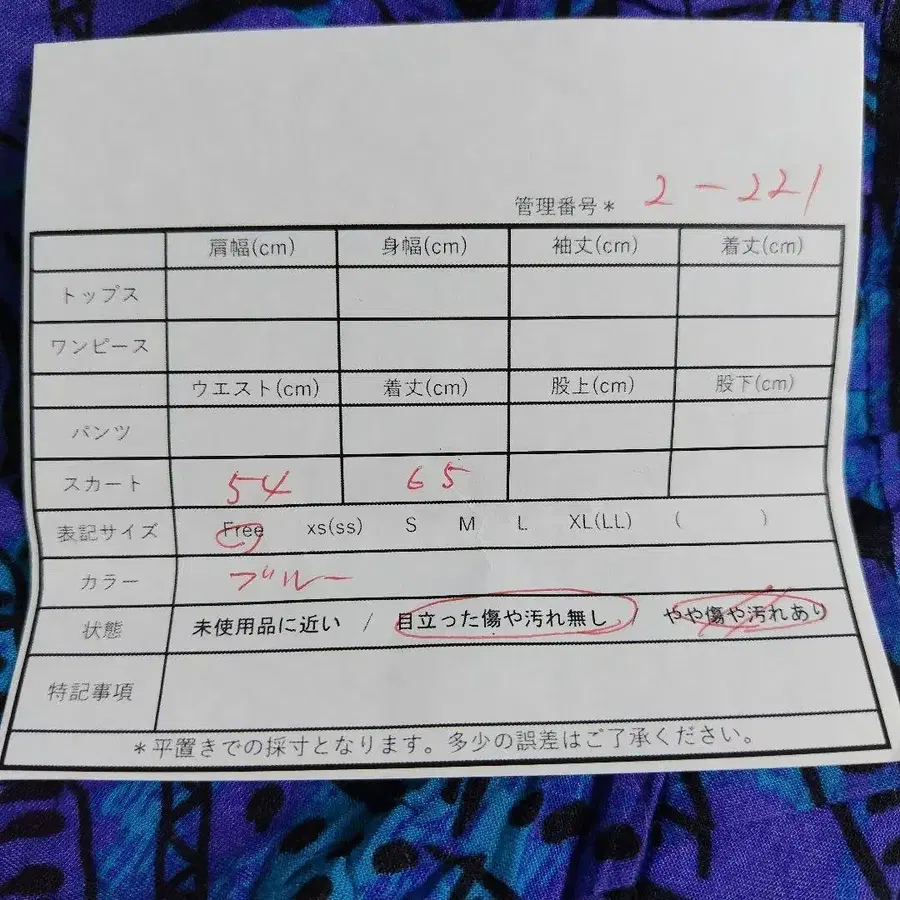 管理番号* 2-221
肩幅(cm) 身幅(cm) 袖丈(cm) 着丈(cm)
トップス
ワンピース
ウエスト(cm) 着丈(cm) 股上(cm) 股下(cm)
パンツ
スカート 54 65
表記サイズ Free xs(ss) S M L XL(LL) ( )
カラー ブルー
状態 未使用品に近い / 目立った傷や汚れ無し / やや傷や汚れあり
特記事項
*平置きでの採寸となります。多少の誤差はご了承ください。